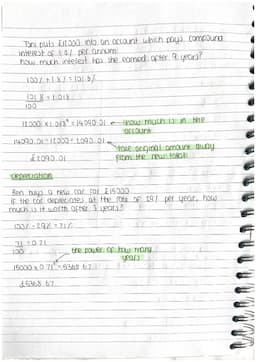 Toni puts £12000 into an account which pays compound
interest of 1.8% per annum.
how much interest has she earned after 9 years?
100% + 1.8% = 101.8%
101.8 = 1.018
100
12000 × 1.018⁹ = 14090.01 ← how much is in the
account
14090.01 - 12000 = 2090.01 take original amount away
from the new total
£2090.01
depreciation
Ben buys a new car for £15000
If the car depreciates at the rate of 29% per year, how
much is it worth after 3 years?
100% - 29% = 71%
71 = 0.71
100
the power of how many
years
15000 × 0.71³ = 5368.67
£5368.67